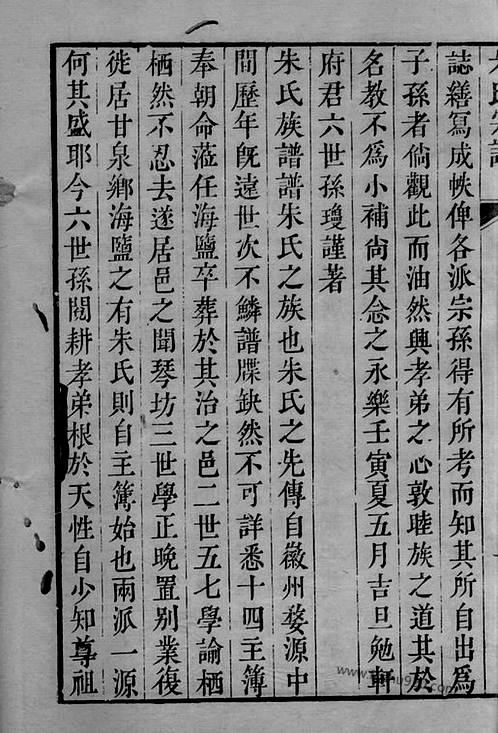 誌繕寫成帙俾各派宗孫得有所考而知其所自出爲
子孫者倘觀此而油然興孝弟之心敦睦族之道其於
名教不爲小補尚其念之永樂壬寅夏五月吉旦勉軒
府君六世孫瓊謹著
朱氏族譜譜朱氏之族也朱氏之先傳自徽州婺源中
間歷年旣遠世次不鱗譜牒缺然不可詳悉十四主簿
奉朝命蒞任海鹽卒葬於其治之邑二世五七學諭栖
栖然不忍去遂居邑之聞琴坊三世學正晩置别業復
徙居甘泉鄉海鹽之有朱氏則自主簿始也兩派一源
何其盛耶今六世孫閱耕孝弟根於天性自少知尊祖